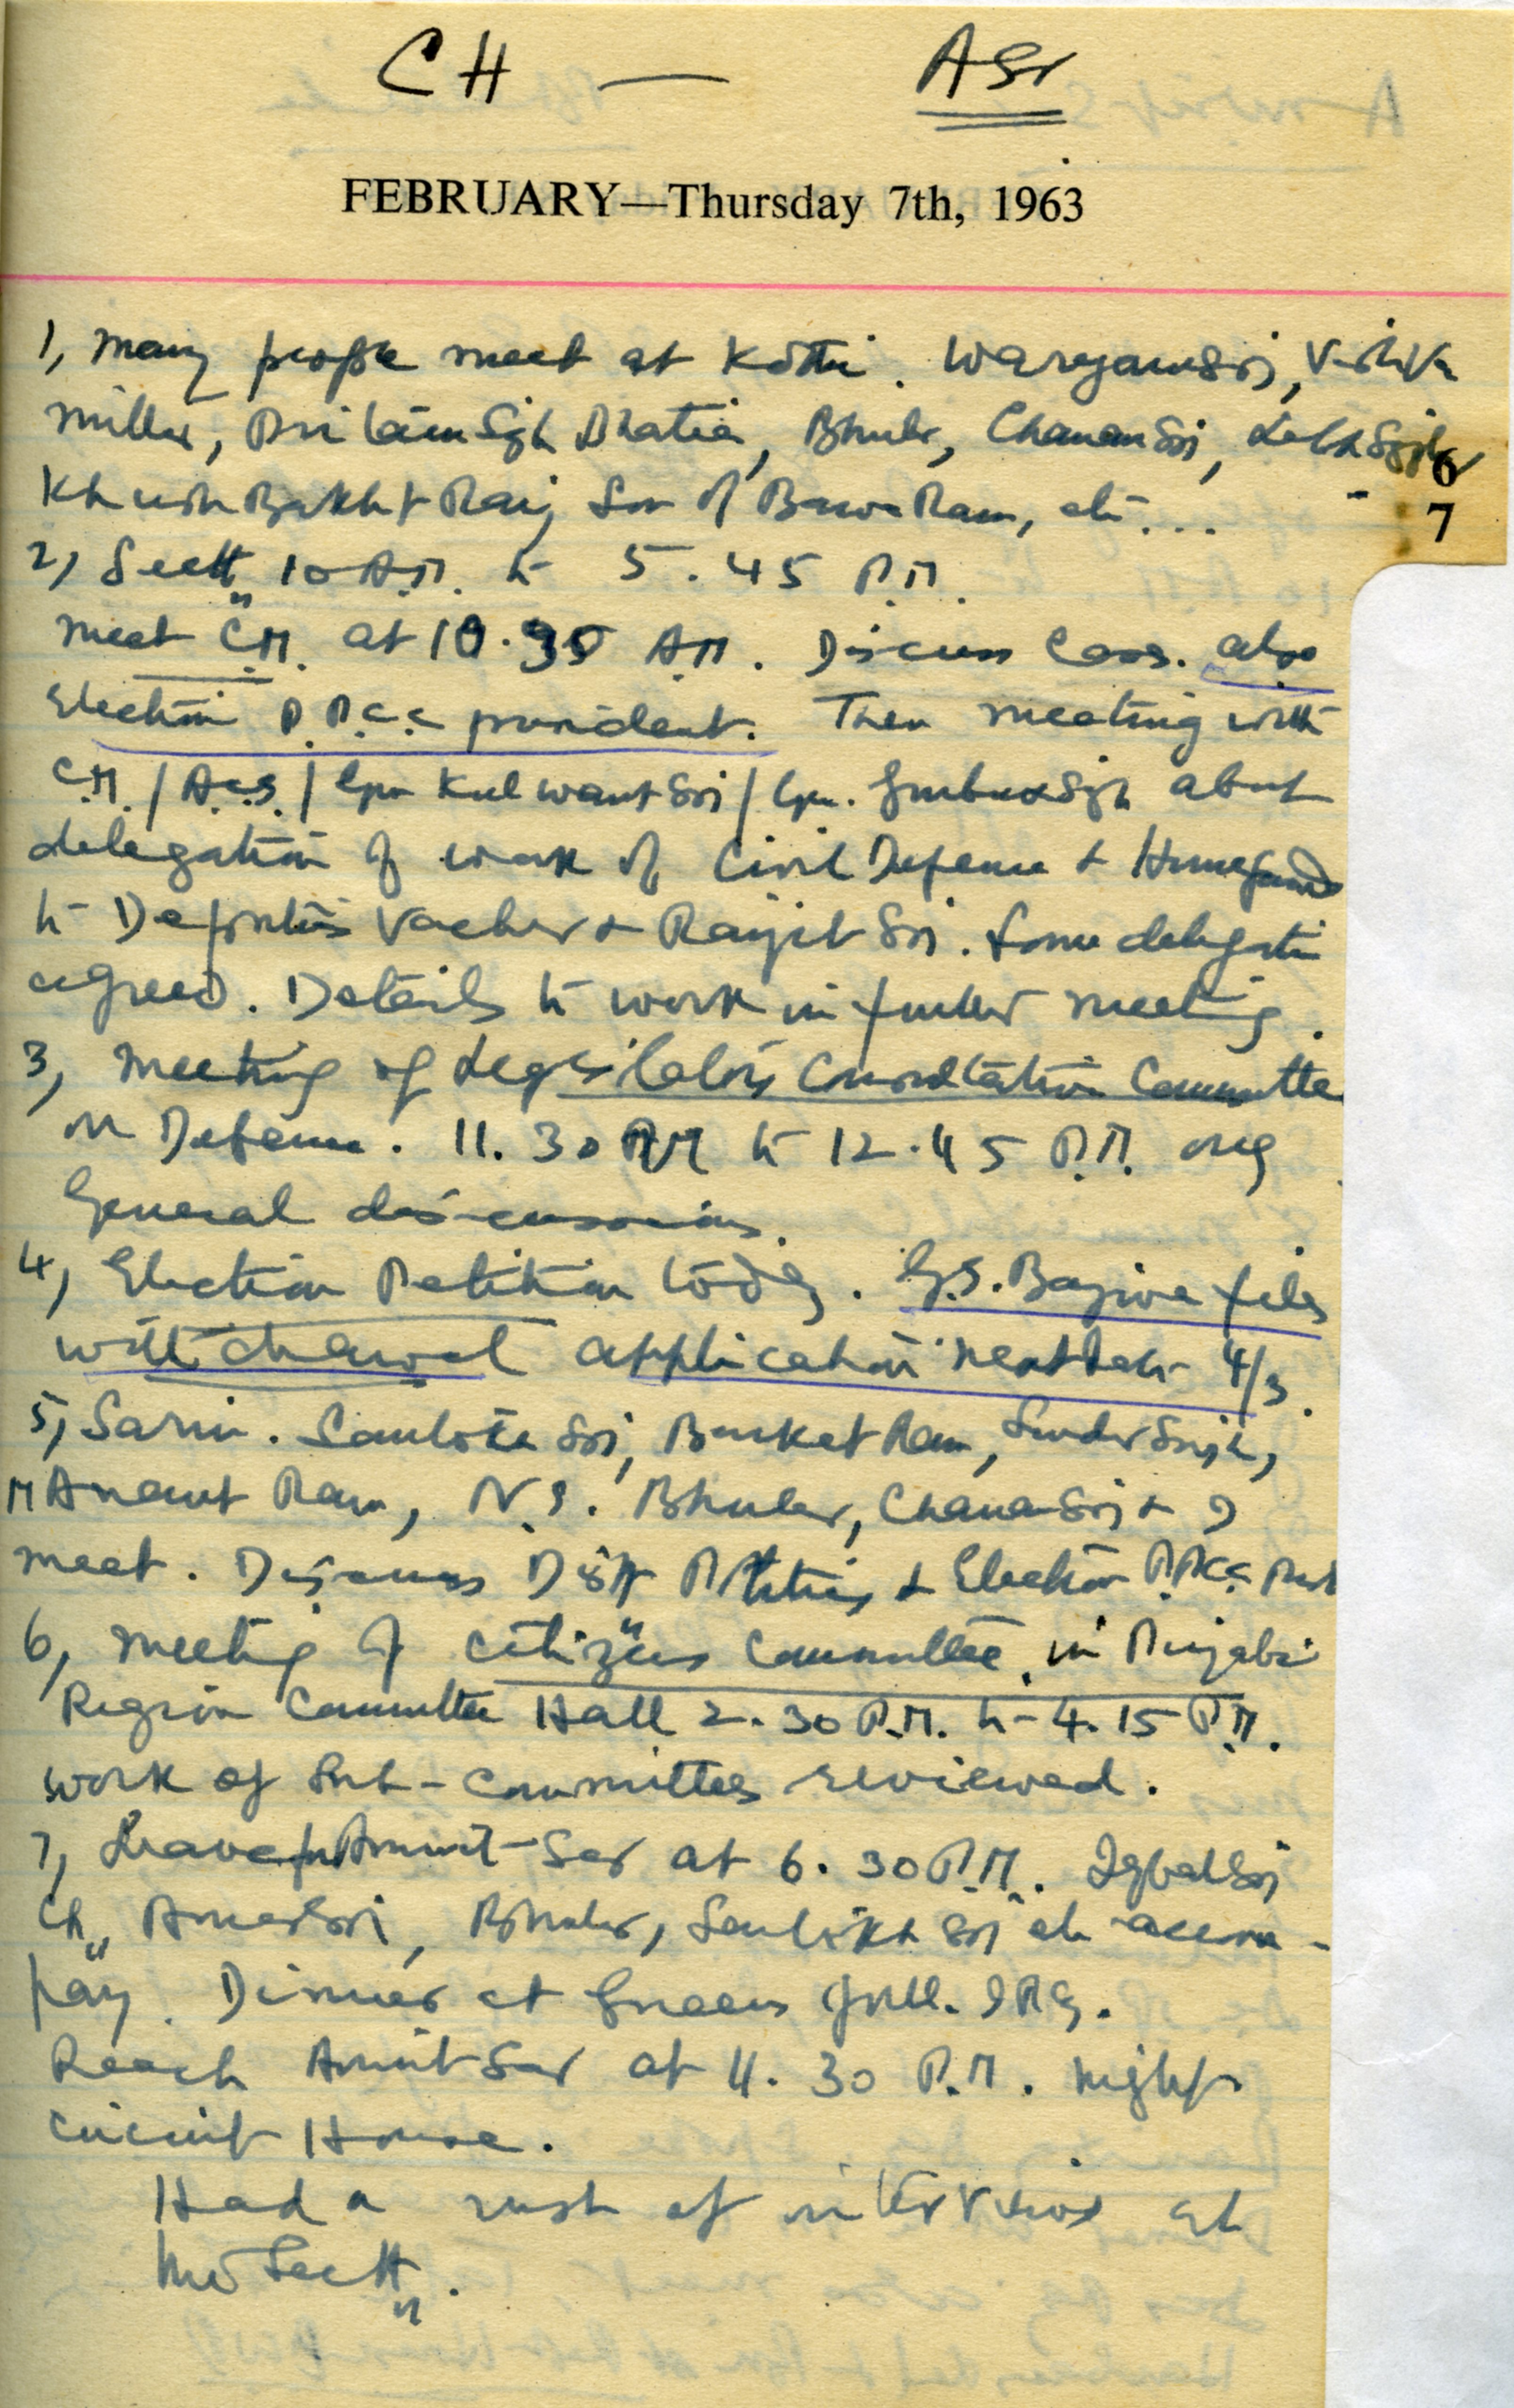 CH — ASr
FEBRUARY—Thursday 7th, 1963
1, Many people meet at Kothi. WaryamSri,
Pritam Sgh Bhatia, Bhuler, Chanan Sri, Labh Singh 6
Khush Bakht Rai, Son of Bawa Ram, etc... 7
2, Sectt 10 A.M. to 5.45 P.M.
meet C.M. at 10. A.M. Discuss Cases. also
Election P.P.C.C president. Then meeting with
C.M. / A.C.S. / Kulwant Sri / Gurbux Sgh about
delegation of work of Civil Defence & Homeguards
to Deputies & Ranjit Sri. Some delegation
agreed. Details to work in further meeting.
3, Meeting of Legislators Consultation Committee
on Defence. 11.30 AM to 12.45 P.M. only
General discussions.
4, Election Petition today. G.S. Bajwa files
withdrawal application next date 4/3.
5, Sarin. Santokh Sri, Barket Ram, Sunder Singh,
M Anant Ram, N.S. Bhuler, Chanan Sri & I
meet. Discuss Distt Politics & Election P.P.C.C. Prest
6, Meeting of Citizens Committee in Punjabi
Region Committee Hall 2.30 P.M. to 4.15 P.M.
work of Sub-committees reviewed.
7, Leave for Amrit-Sar at 6.30 P.M. Iqbal Sri
Ch Amar Sri, Bhuler, Santokh Sri etc accom-
pany. Dinner at Greens
Reach Amrit Sar at 11.30 P.M. night
Circuit House.
Had a rush of interviews at
the Sectt.